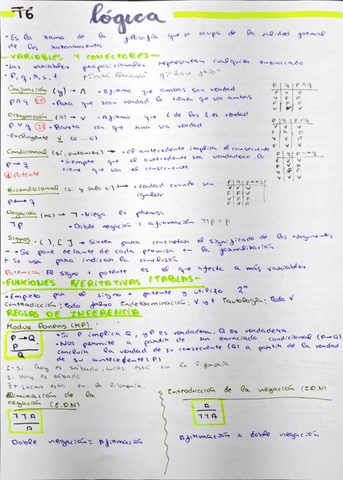 T6
lógica
• Es la rama de la filosofía que se ocupa de la validez formal
de los razonamientos.
- VARIABLES Y CONECTORES -
• Las variables proposicionales representan cualquier enunciado
• P, q, r, s, t
Conjunción (y) → ∧ • Afirmo que ambas son verdad
p ∧ q • Para que sean verdad lo tienen que ser ambas
Disyunción (o) → ∨ • Afirmo que 1 de las 2 es verdad
p ∨ q • Basta con que una sea verdad
• Excluyente
Condicional (si, entonces) → • el antecedente implica el consecuente
p → q • siempre que el antecedente sea verdadero, lo
tiene que ser el consecuente
Potente
Bicondicional (si y solo si) ↔ • verdad cuando son
p ↔ q iguales
Negación (no) → ¬ • Niega la premisa
¬p • Doble negación = afirmación ¬¬p = p
Signos - ( ), [ ] → Sirven para concretar el significado de los argumentos
- Se pone delante de cada premisa en la formalización
⊢ Se usa para indicar la conclusión
Potencia: El signo + potente es el que afecta a más variables.
- FUNCIONES VERITATIVAS (TABLAS) -
• Empieto por el signo + potente y utilizo 2ⁿ
Contradicción: todo falso Indeterminación: V y F Tautología: todo V
REGLAS DE INFERENCIA
Modus Ponens (MP)
P → Q
P
Q
• Si P implica Q, y P es verdadera, Q es verdadera.
• Nos permite a partir de un enunciado condicional (P→Q)
concluir la verdad de su consecuente (Q) a partir de la verdad
de su antecedente (P)
1 - Si hoy es sábado, Lucas está en la librería
2 - Hoy es sábado
3 - Lucas está en la librería.
Eliminación de la
negación (E.D.N)
¬¬A
A
Doble negación = Afirmación
Introducción de la negación (I.D.N)
A
¬¬A
Afirmación = doble negación